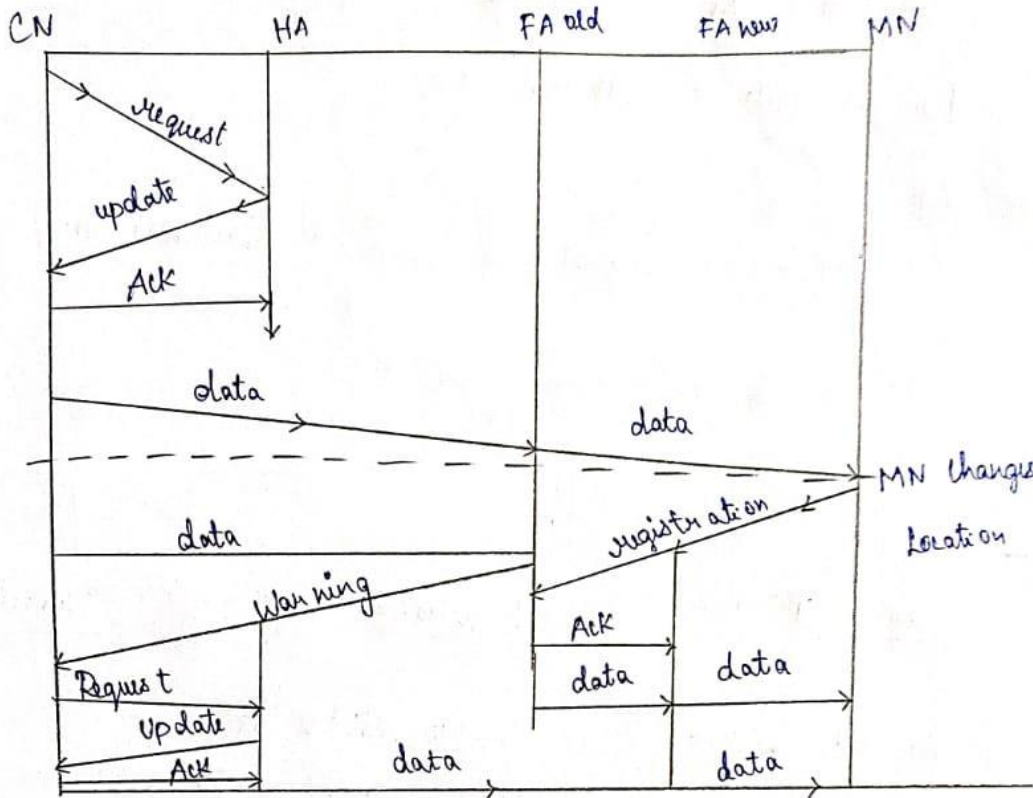 CN HA FA old FA new MN
request
update
Ack
data
data
MN Changes
Location
registration
data
Warning
Ack
data data
Request
Update
Ack
data data